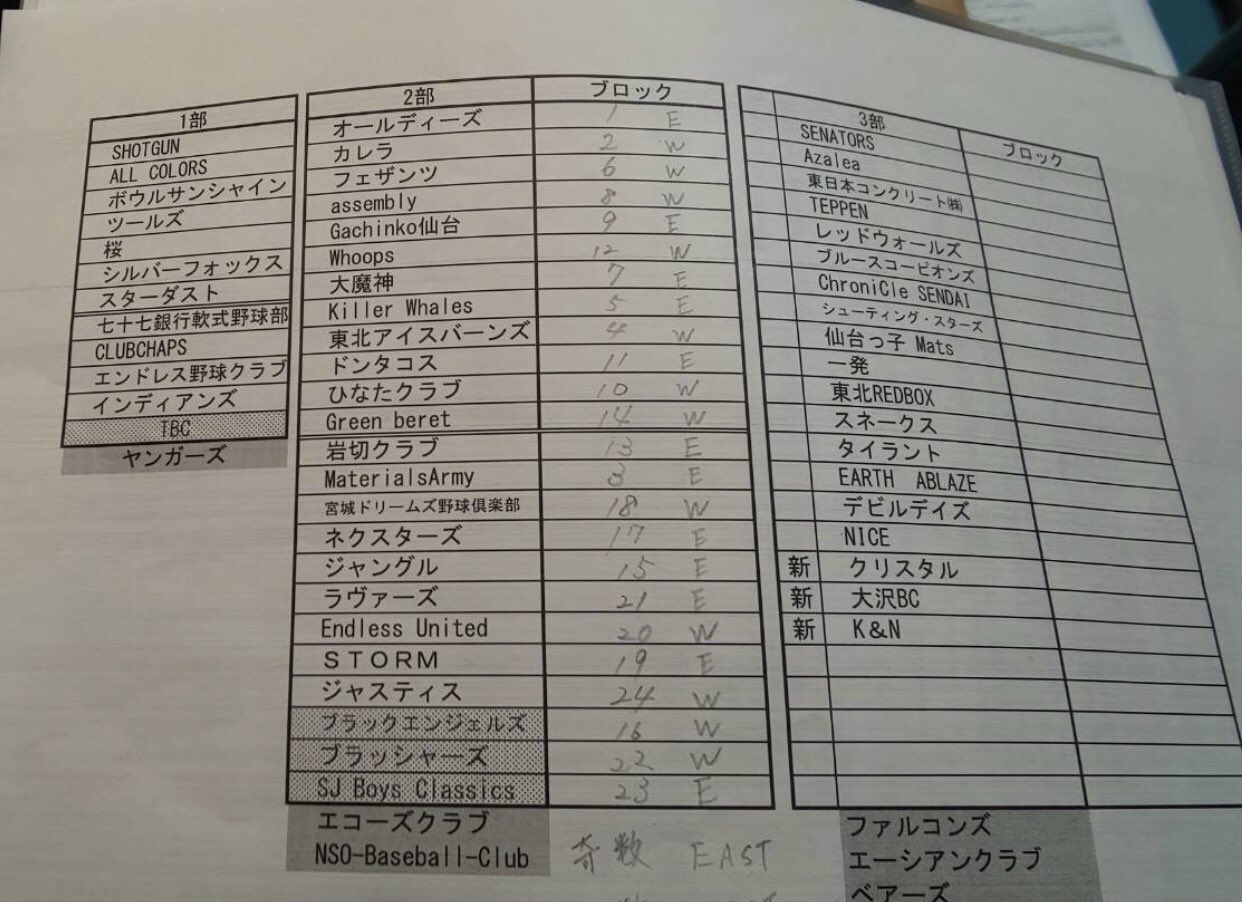 1部
SHOTGUN
ALL COLORS
ボウルサンシャイン
ツールズ
桜
シルバーフォックス
スターダスト
七十七銀行軟式野球部
CLUBCHAPS
エンドレス野球クラブ
インディアンズ
TBC
ヤンガーズ
2部 ブロック
オールディーズ 1 E
カレラ 2 W
フェザンツ 6 W
assembly 8 W
Gachinko仙台 9 E
Whoops 12 W
大魔神 7 E
Killer Whales 5 E
東北アイスバーンズ 4 W
ドンタコス 11 E
ひなたクラブ 10 W
Green beret 14 W
岩切クラブ 13 E
MaterialsArmy 3 E
宮城ドリームズ野球倶楽部 18 W
ネクスターズ 17 E
ジャングル 15 E
ラヴァーズ 21 E
Endless United 20 W
STORM 19 E
ジャスティス 24 W
ブラックエンジェルズ 16 W
ブラッシャーズ 22 W
SJ Boys Classics 23 E
エコーズクラブ
NSO-Baseball-Club
奇数 EAST
3部 ブロック
SENATORS
Azalea
東日本コンクリート㈱
TEPPEN
レッドウォールズ
ブルースコーピオンズ
ChroniCle SENDAI
シューティング・スターズ
仙台っ子 Mats
一発
東北REDBOX
スネークス
タイラント
EARTH ABLAZE
デビルデイズ
NICE
新 クリスタル
新 大沢BC
新 K&N
ファルコンズ
エーシアンクラブ
ベアーズ